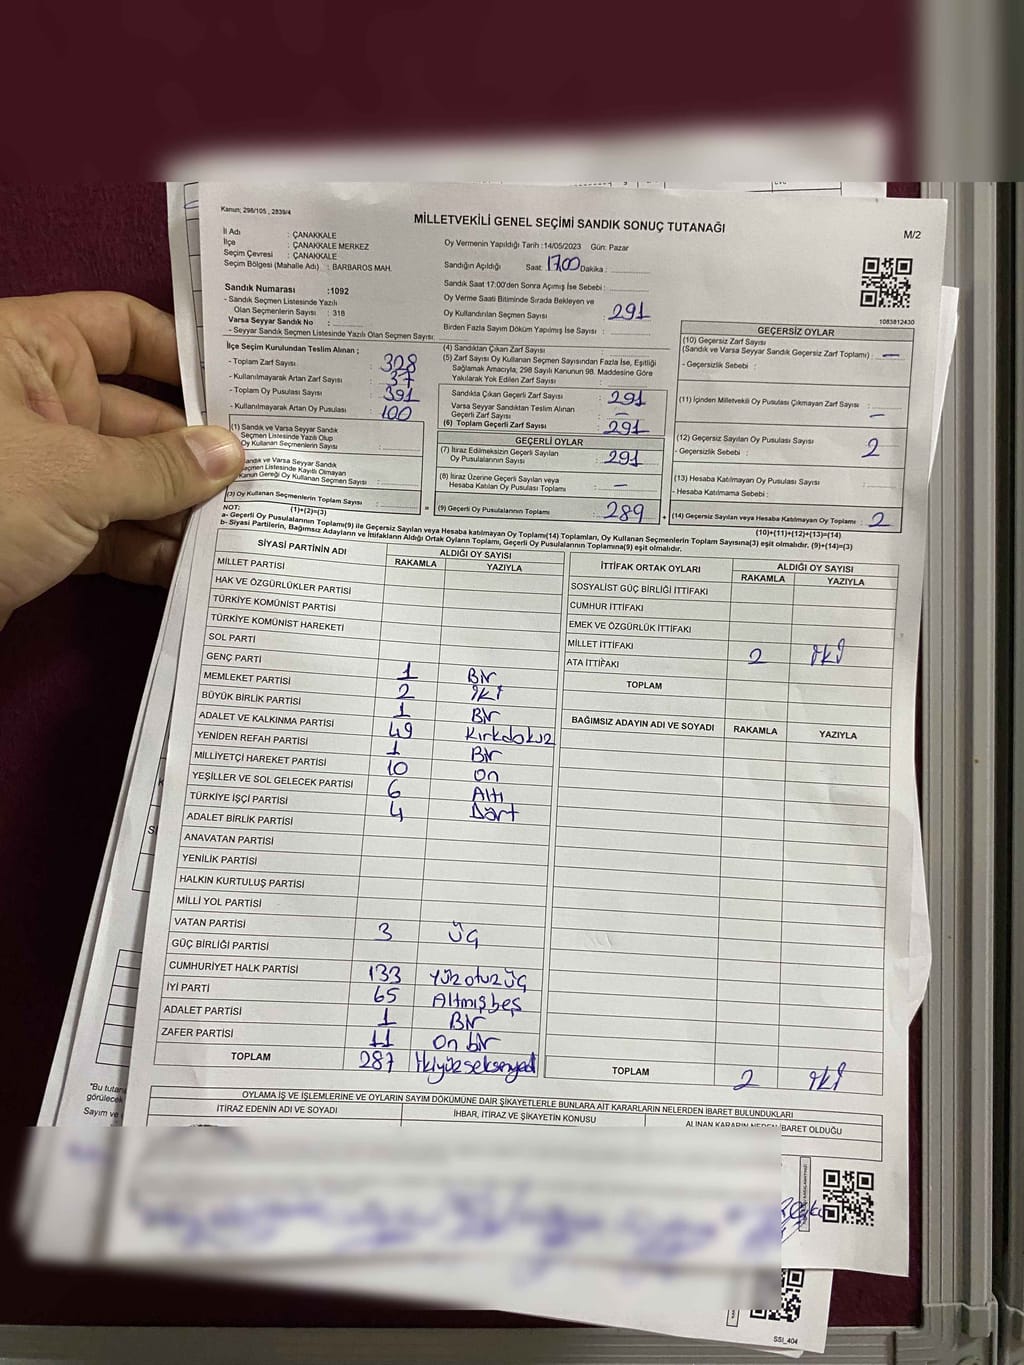 Kanun; 298/105 , 2839/4
MİLLETVEKİLİ GENEL SEÇİMİ SANDIK SONUÇ TUTANAĞI
M/2
İl Adı : ÇANAKKALE
İlçe : ÇANAKKALE MERKEZ
Seçim Çevresi : ÇANAKKALE
Seçim Bölgesi (Mahalle Adı) : BARBAROS MAH.
Oy Vermenin Yapıldığı Tarih :14/05/2023 Gün: Pazar
Sandığın Açıldığı Saat: 17.00 Dakika :
Sandık Numarası :1092
- Sandık Seçmen Listesinde Yazılı
Olan Seçmenlerin Sayısı : 318
Varsa Seyyar Sandık No :
- Seyyar Sandık Seçmen Listesinde Yazılı Olan Seçmen Sayısı
Sandık Saat 17:00'den Sonra Açımış İse Sebebi :
Oy Verme Saati Bitiminde Sırada Bekleyen ve
Oy Kullandırılan Seçmen Sayısı : 291
Birden Fazla Sayım Döküm Yapılmış İse Sayısı :
1083812430
İlçe Seçim Kurulundan Teslim Alınan ;
- Toplam Zarf Sayısı : 328
- Kullanılmayarak Artan Zarf Sayısı : 37
- Toplam Oy Pusulası Sayısı : 391
- Kullanılmayarak Artan Oy Pusulası 100
(1) Sandık ve Varsa Seyyar Sandık
Seçmen Listesinde Yazılı Olup
Oy Kullanan Seçmenlerin Sayısı :
Sandık ve Varsa Seyyar Sandık
Seçmen Listesinde Kayıtlı Olmayan
Kanun Gereği Oy Kullanan Seçmen Sayısı :
(3) Oy Kullanan Seçmenlerin Toplam Sayısı :
(1)+(2)=(3)
(4) Sandıktan Çıkan Zarf Sayısı :
(5) Zarf Sayısı Oy Kullanan Seçmen Sayısından Fazla İse, Eşitliği
Sağlamak Amacıyla, 298 Sayılı Kanunun 98. Maddesine Göre
Yakılarak Yok Edilen Zarf Sayısı :
Sandıkta Çıkan Geçerli Zarf Sayısı : 291
Varsa Seyyar Sandıktan Teslim Alınan
Geçerli Zarf Sayısı : —
(6) Toplam Geçerli Zarf Sayısı : 291
GEÇERLİ OYLAR
(7) İtiraz Edilmeksizin Geçerli Sayılan
Oy Pusulalarının Sayısı : 291
(8) İtiraz Üzerine Geçerli Sayılan veya
Hesaba Katılan Oy Pusulası Toplamı : —
= (9) Geçerli Oy Pusulalarının Toplamı : 289
GEÇERSİZ OYLAR
(10) Geçersiz Zarf Sayısı
(Sandık ve Varsa Seyyar Sandık Geçersiz Zarf Toplamı) : —
- Geçersizlik Sebebi :
(11) İçinden Milletvekili Oy Pusulası Çıkmayan Zarf Sayısı : —
(12) Geçersiz Sayılan Oy Pusulası Sayısı : 2
- Geçersizlik Sebebi :
(13) Hesaba Katılmayan Oy Pusulası Sayısı :
- Hesaba Katılmama Sebebi :
+ (14) Geçersiz Sayılan veya Hesaba Katılmayan Oy Toplamı : 2
(10)+(11)+(12)+(13)=(14)
NOT:
a- Geçerli Oy Pusulalarının Toplamı(9) ile Geçersiz Sayılan veya Hesaba katılmayan Oy Toplamı(14) Toplamları, Oy Kullanan Seçmenlerin Toplam Sayısına(3) eşit olmalıdır. (9)+(14)=(3)
b- Siyasi Partilerin, Bağımsız Adayların ve İttifakların Aldığı Ortak Oyların Toplamı, Geçerli Oy Pusulalarının Toplamına(9) eşit olmalıdır.
SİYASİ PARTİNİN ADI ALDIĞI OY SAYISI
RAKAMLA YAZIYLA
MİLLET PARTİSİ
HAK VE ÖZGÜRLÜKLER PARTİSİ
TÜRKİYE KOMÜNİST PARTİSİ
TÜRKİYE KOMÜNİST HAREKETİ
SOL PARTİ
GENÇ PARTİ 1 Bir
MEMLEKET PARTİSİ 2 İki
BÜYÜK BİRLİK PARTİSİ 1 Bir
ADALET VE KALKINMA PARTİSİ 49 Kırkdokuz
YENİDEN REFAH PARTİSİ 1 Bir
MİLLİYETÇİ HAREKET PARTİSİ 10 On
YEŞİLLER VE SOL GELECEK PARTİSİ 6 Altı
TÜRKİYE İŞÇİ PARTİSİ 4 Dört
ADALET BİRLİK PARTİSİ
ANAVATAN PARTİSİ
YENİLİK PARTİSİ
HALKIN KURTULUŞ PARTİSİ
MİLLİ YOL PARTİSİ
VATAN PARTİSİ 3 Üç
GÜÇ BİRLİĞİ PARTİSİ
CUMHURİYET HALK PARTİSİ 133 Yüzotuzüç
İYİ PARTİ 65 Altmışbeş
ADALET PARTİSİ 1 Bir
ZAFER PARTİSİ 11 On bir
TOPLAM 287 İkiyüzseksenyedi
İTTİFAK ORTAK OYLARI ALDIĞI OY SAYISI
RAKAMLA YAZIYLA
SOSYALİST GÜÇ BİRLİĞİ İTTİFAKI
CUMHUR İTTİFAKI
EMEK VE ÖZGÜRLÜK İTTİFAKI
MİLLET İTTİFAKI 2 İki
ATA İTTİFAKI
TOPLAM
BAĞIMSIZ ADAYIN ADI VE SOYADI RAKAMLA YAZIYLA
TOPLAM 2 İki
OYLAMA İŞ VE İŞLEMLERİNE VE OYLARIN SAYIM DÖKÜMÜNE DAİR ŞİKAYETLERLE BUNLARA AİT KARARLARIN NELERDEN İBARET BULUNDUKLARI
İTİRAZ EDENİN ADI VE SOYADI İHBAR, İTİRAZ VE ŞİKAYETİN KONUSU ALINAN KARARIN NEDEN İBARET OLDUĞU
"Bu tutan
görülecek
Sayım ve
SSI_404